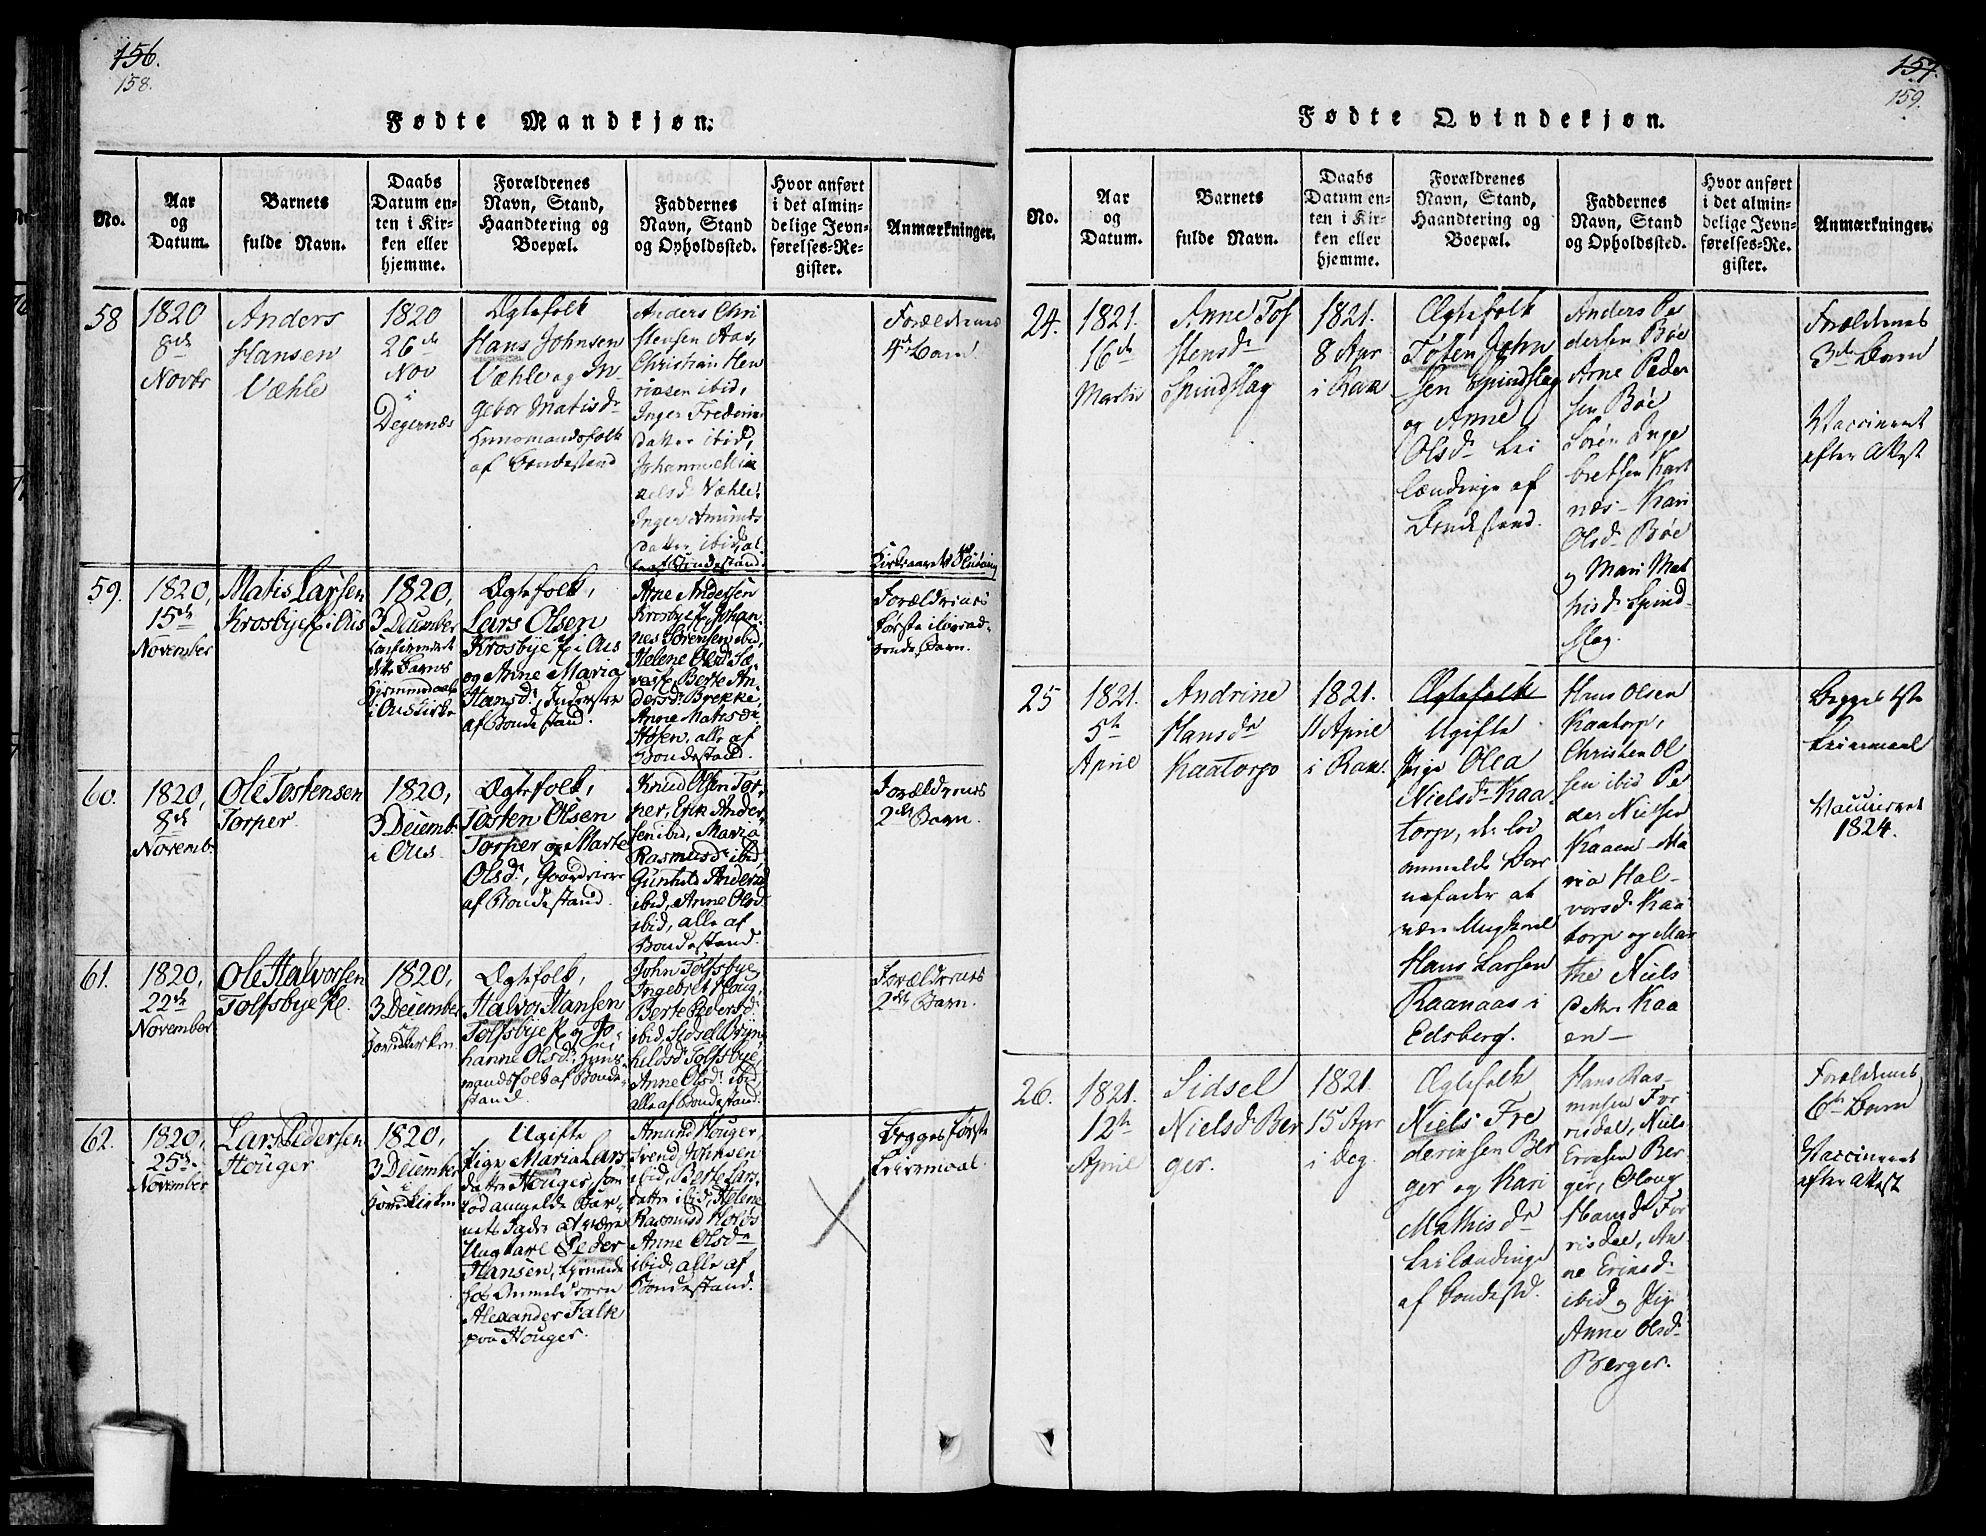 156.
158.
Fødte Mandkjøn.
No.
Aar
og
Datum.
Barnets
fulde Navn.
Daabs
Datum en-
ten i Kir-
ken eller
hjemme.
Forældrenes
Navn, Stand,
Haandtering og
Boepæl.
Faddernes
Navn, Stand
og Opholdssted.
Hvor anført
i det almin-
delige Jevn-
førelses-Re-
gister.
Anmærkninger.
58
1820
8de
Novbr
Anders
Hansen
Væhle
1820
26de
Nov
i
Degernæs
Ægtefolk
Hans Johnsen
Væhle og In-
gebor Matisdr
Huusmandsfolk
af Bondestand
Anders Chri
stensen Aas,
Christian Hen
ricksen ibid,
Inger Frederic
datter ibid,
Johanne Mic
kelsdr Væhle,
Inger Amunds
datter ibid, al
le af Bondestand.
Forældrenes
4de Barn
59.
1820,
15de
November
Matis Larsen
Krosbye i Aas
1820,
3 December
i Aas Kirke
Ægtefolk,
Lars Olsen
Krosbye i Aas
og Anne Maria
Hansdr, Inderster
af Bondestand.
Arne Andersen
Krosbye, Johan-
nes Sørensen ibid,
Helene Olsdr
Berte An-
dersdr Brekke,
Anne Matisdr
alle af
Bondestand.
Forældrenes
første
Barn.
60.
1820,
8de
Novemb.
Ole Tostensen
Torper
1820,
3 Decemb.
i Aas.
Ægtefolk,
Tosten Olsen
Torper og Marte
Olsdr, Gaardeiere
af Bondestand.
Knud Olsen Tor-
per, Erik Ander-
sen ibid, Maria
Rasmusdr ibid,
Gunhild Andersd
ibid, Anne Olsd
ibid, alle af
Bondestand.
Forældrenes
2det Barn.
61.
1820,
22de
November
Ole Halvorsen
Tolfsbye
1820,
3 December
i
Hovedkirken
Ægtefolk,
Halvor Hansen
Tolfsbye og Jo-
hanne Olsdr, Huus-
mandsfolk af Bonde-
stand.
John Tolfsbye,
Ingebret Houg,
Berte Pedersdr
ibid, Sidsel Bryn-
hildsdr Tolfsbye,
Anne Olsdr ibid,
alle af Bondestand.
Forældrenes
2det Barn.
62.
1820,
25de
November
Lars Pedersen
Houger
1820,
3 December
i
Hovedkirken
Ugifte
Pige Maria Lars-
datter Houger, som
lod anmelde Bar-
nets Fader at være
Ungkarl Peder
Hansen, tjenende
hos
Alexander Falk
paa Houger.
Amund Houger,
Svend Johnsen
ibid, Berte Lars-
datter ibid, Helene
Rasmusd Holøs
Anne Olsdr
ibid, alle af
Bondestand.
Begges første
Leiermaal.
157.
159.
Fødte Qvindekjøn.
No.
Aar
og
Datum.
Barnets
fulde Navn.
Daabs
Datum en-
ten i Kir-
ken eller
hjemme.
Forældrenes
Navn, Stand,
Haandtering og
Boepæl.
Faddernes
Navn, Stand
og Opholdssted.
Hvor anført
i det almin-
delige Jevn-
førelses-Re-
gister.
Anmærkninger.
24.
1821.
16de
Martii
Anne Tos
stensdr
Spindslag
1821.
8 Apr
i Rak
Ægtefolk
Tosten John
sen Spindslag
og Anne
Olsdr Lei
lændinge af
Bondestand.
Anders Pe
dersen Bøe
Arne Peder
sen Bøe
Søren Inge
bretsen Kart
næs - Kari
Olsdr Bøe
og Mari Mat
hisdr Spind-
slag.
Forældrenes
3de Barn
Vaccineret
efter Attest
25
1821.
5te
April
Andrine
Hansdr
Kaatorp
1821.
11 April
i Rak.
Ægtefolk
Ugifte
Pige Olea
Nielsdr Kaa-
torp, der lod
anmelde Bar
nefader at
være Ungkarl
Hans Larsen
Raanaas i
Edsberg.
Hans Olsen
Kaatorp,
Christen Ol
sen ibid Pe
der Nielsen
Kaaen - Ma
ria Hal-
vorsdr Kaa
torp og Mar
the Niels
datter Kaa
en -
Begges 1ste
Leiermaal
Vaccineret
1824.
26.
1821.
12te
April
Sidsel
Nielsdr Ber
ger.
1821.
15 Apr
i Deg.
Ægtefolk
Niels Fre
dericsen Ber
ger og Kari
Mathisdr
Leilændinge
af Bondestd.
Hans Ras-
musen For
risdal, Niels
Ericsen Ber
ger, Oloug
Hansdr For
risdal, An
ne Ericsdr
ibid og Pig
Anne Olsdr
Berger.
Forældrenes
6te Barn
Vaccineret
efter Attest